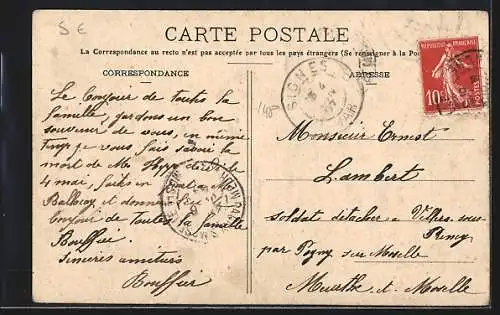 5 €
CARTE POSTALE
La Correspondance au recto n'est pas acceptée par tous les pays étrangers (Se renseigner à la Po
CORRESPONDANCE
ADRESSE
REPUBLIQUE FRANÇAISE
10
POSTES
SIGNES
VAR
Le bonjour de toute la
famille, gardons un bon
souvenir de vous, en même
temp je vous fais savoir la
mort de Mr
4 mai, faits en part à
et donner
bonjour de toute la famille
Bouffier.
Sincères amitiés
Bouffier
Monsieur Ernest
Lambert
soldat détacher a sous
par Pagny sur Moselle
Meurthe et Moselle